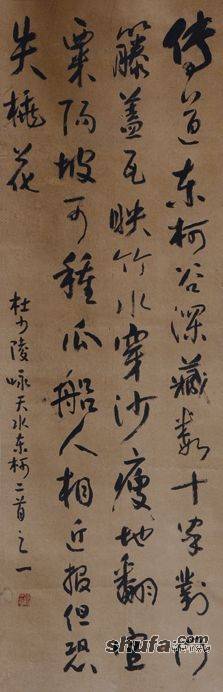 传道东柯谷深藏数十家对门
藤盖瓦映竹水穿沙瘦地翻宜
粟阳坡可种瓜船人相近报但恐
失桃花
杜少陵咏天水东柯二首之一
shufa.com